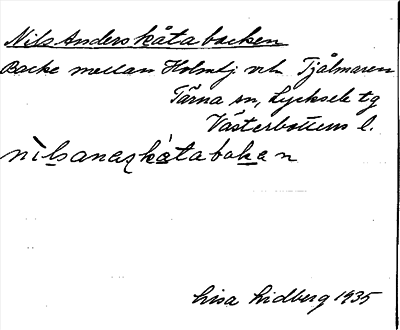 Nils Anders kåtabacken
Backe mellan Holmtj och Tjålmaren
Tärna sn, Lycksele tg
Västerbottens l.
nìlsanaʂkátabakan
Lisa Lidberg 1935